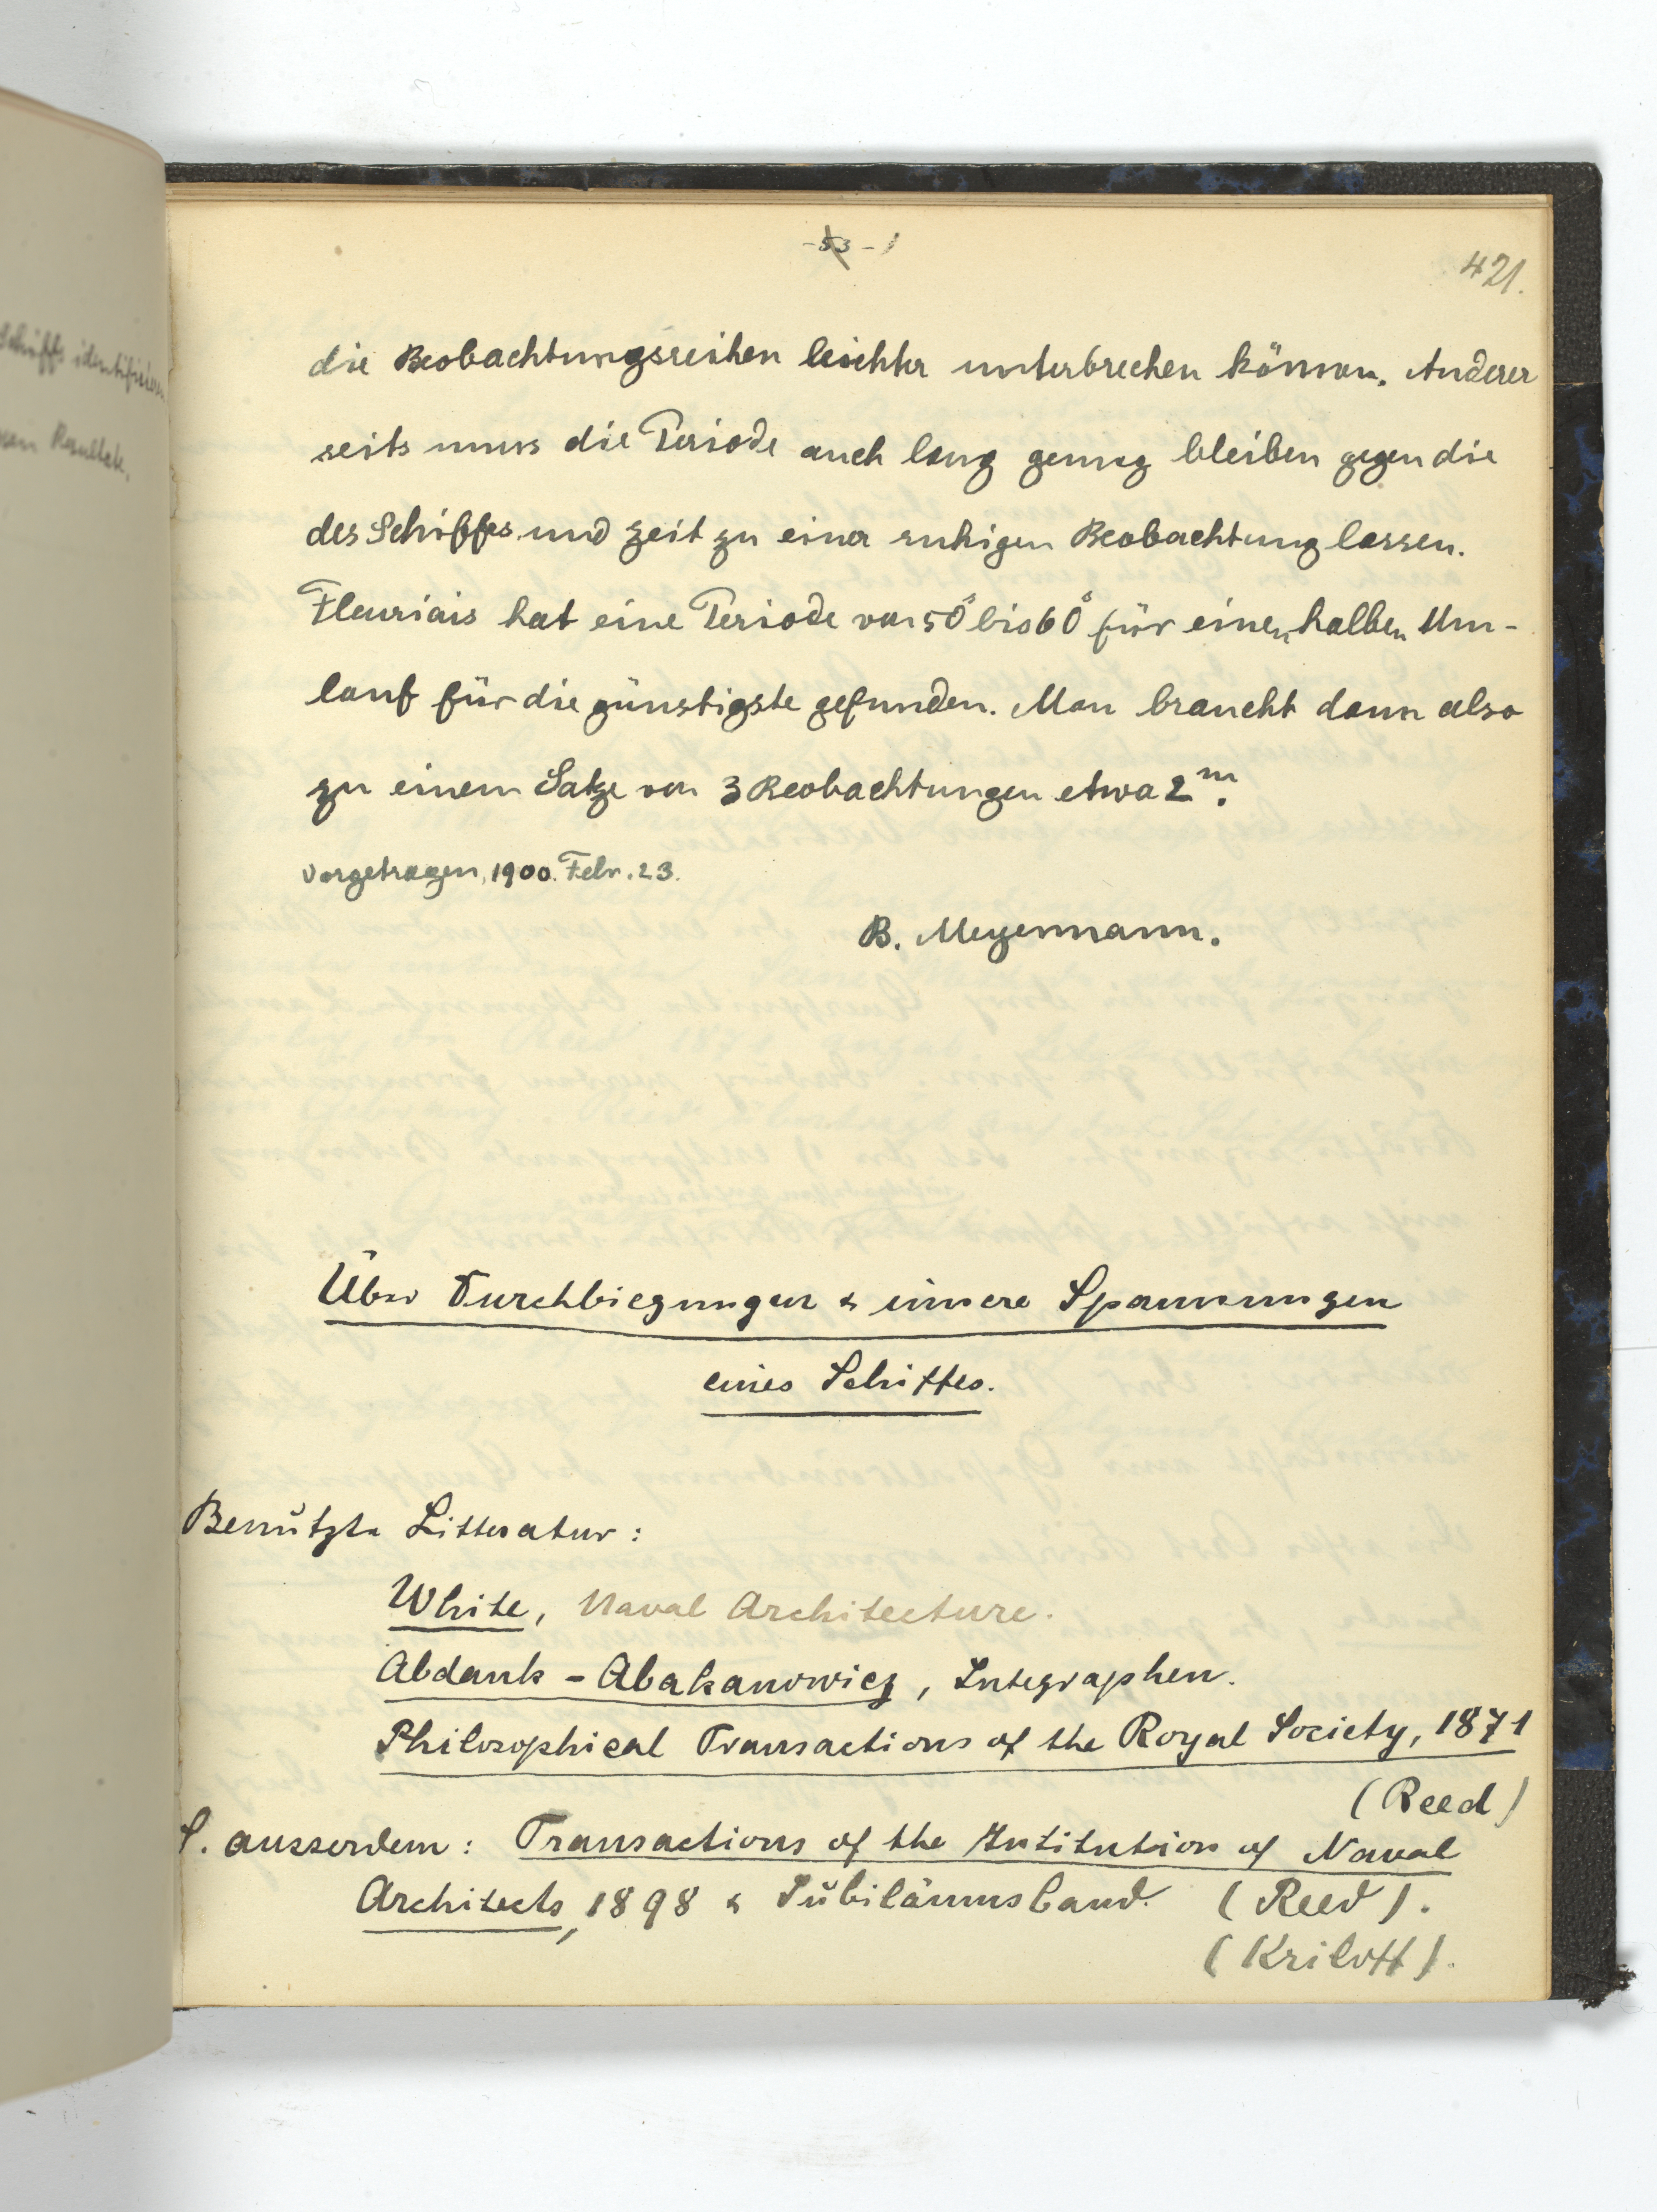 -53-
421.
die Beobachtungsreihen leichter unterbrechen können. Anderer
seits muss die Periode auch lang genug bleiben gegen die
des Schiffes und Zeit zu einer ruhigen Beobachtung lassen.
Fleuriais hat eine Periode von 50s bis 60s für einen halben Um-
lauf für die günstigste gefunden. Man braucht dann also
zu einem Satze von 3 Beobachtungen etwa 2m.
Vorgetragen, 1900. Febr. 23.
B. Meyermann.
Über Durchbiegungen & innere Spannungen
eines Schiffes.
Benützte Litteratur:
White, Naval Architecture.
Abdank-Abakanowicz, Integraphen.
Philosophical Transactions of the Royal Society, 1871
(Reed)
S. ausserdem: Transactions of the Institution of Naval
Architects, 1898 & Jubiläumsband. (Reed).
(Kriloff).
Schiffs identifizieren
Resultate,